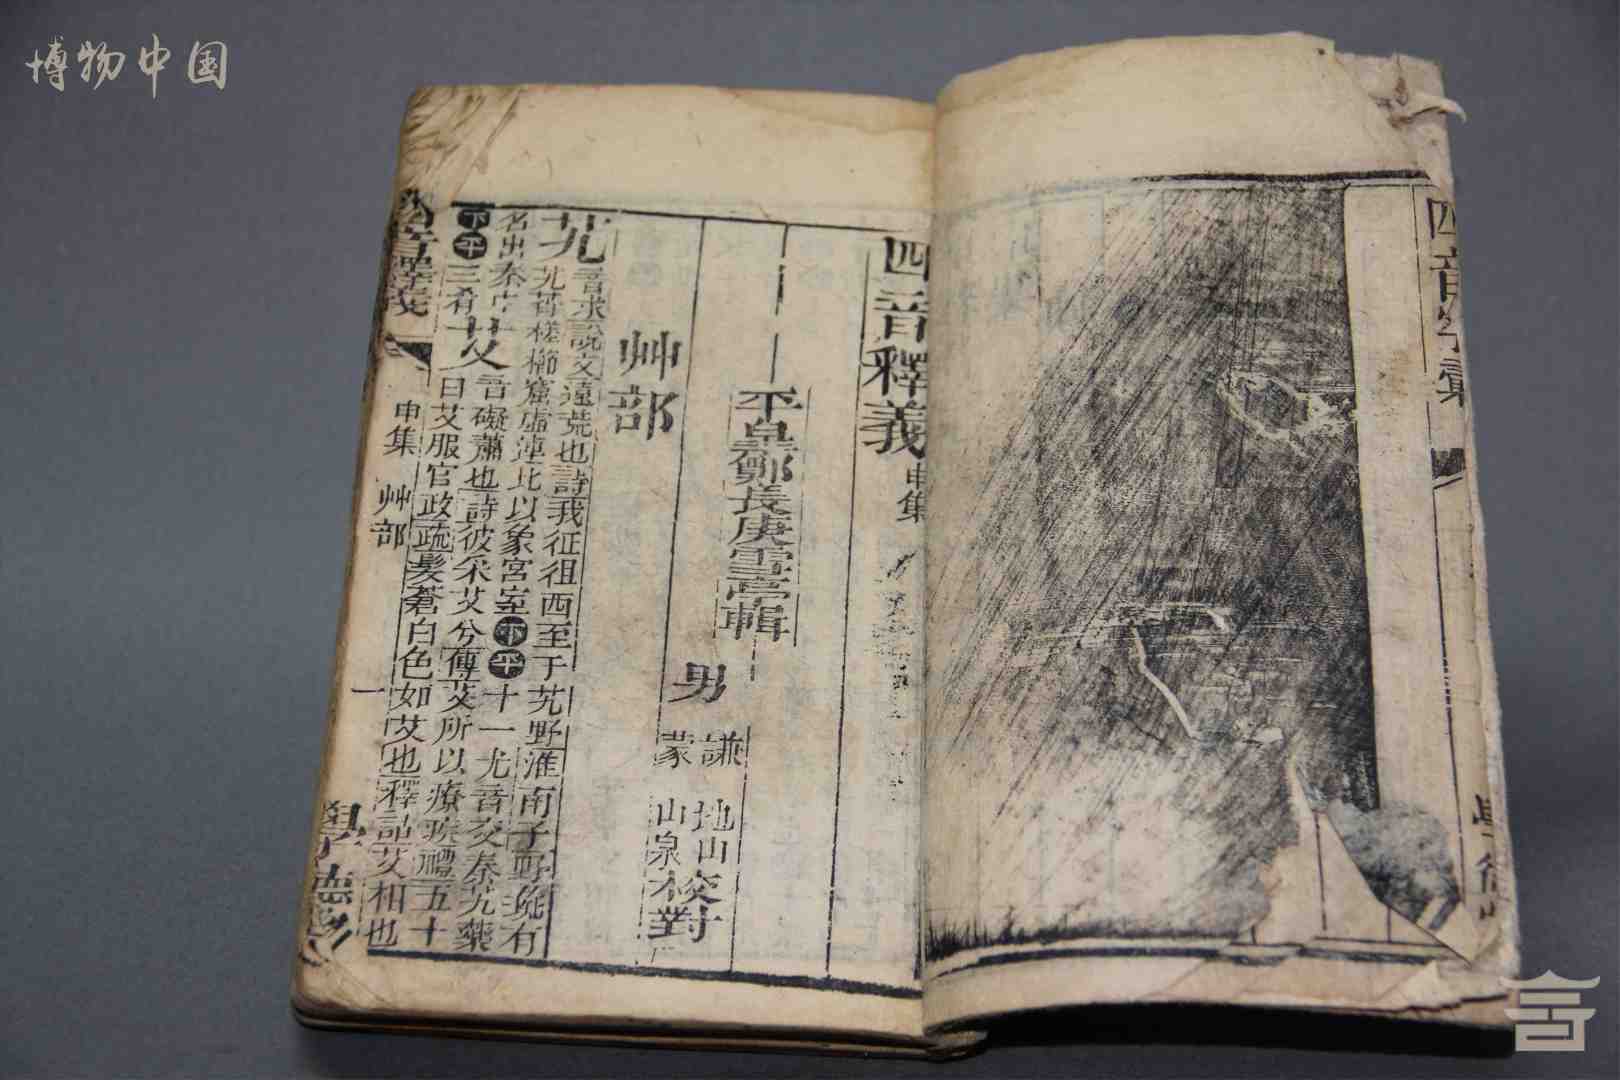 博物中国
四音釋義
申集
平皐鄭長庚雪亭輯
男
謙 地山
蒙 山泉
校對
艸部
艽 音求說文遠荒也詩我征徂西至于艽野淮南子野彘有
艽莦槎櫛窟虛連比以象宮室下平十一尤音交秦艽藥
名出秦中下平三肴 艾 音礙蕭也詩彼采艾兮傳艾所以療疾禮五十
曰艾服官政疏髮蒼白色如艾也釋詁艾相也
四音釋義
申集
艸部
一
四音字彙